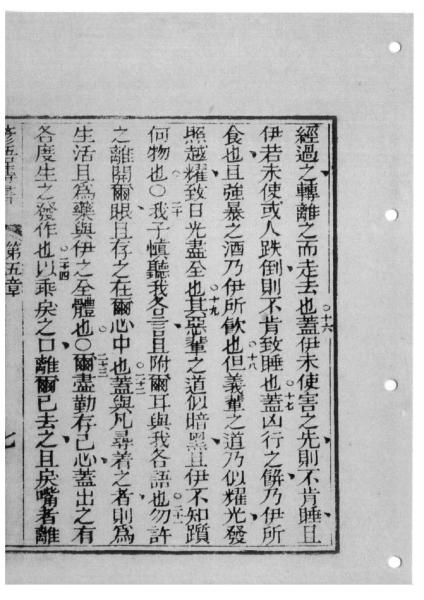 經過之轉離之而走去也○十六蓋伊未使害之先則不肯睡且
伊若未使或人跌倒則不肯致睡也○十七蓋凶行之餅乃伊所
食也且強暴之酒乃伊所飲也○十八但義輩之道乃似耀光發
照越耀致日光盡全也○十九其惡輩之道似暗黑且伊不知躓
何物也○二十我子慎聽我各言且附爾耳與我各語也○二十一勿許
之離開爾眼且存之在爾心中也○二十二蓋與凡尋着之者則為
生活且為藥與伊之全體也○二十三爾盡勤存己心蓋出之有
各度生之發作也○二十四以乖戾之口離爾已去之且戾嘴者離
第五章